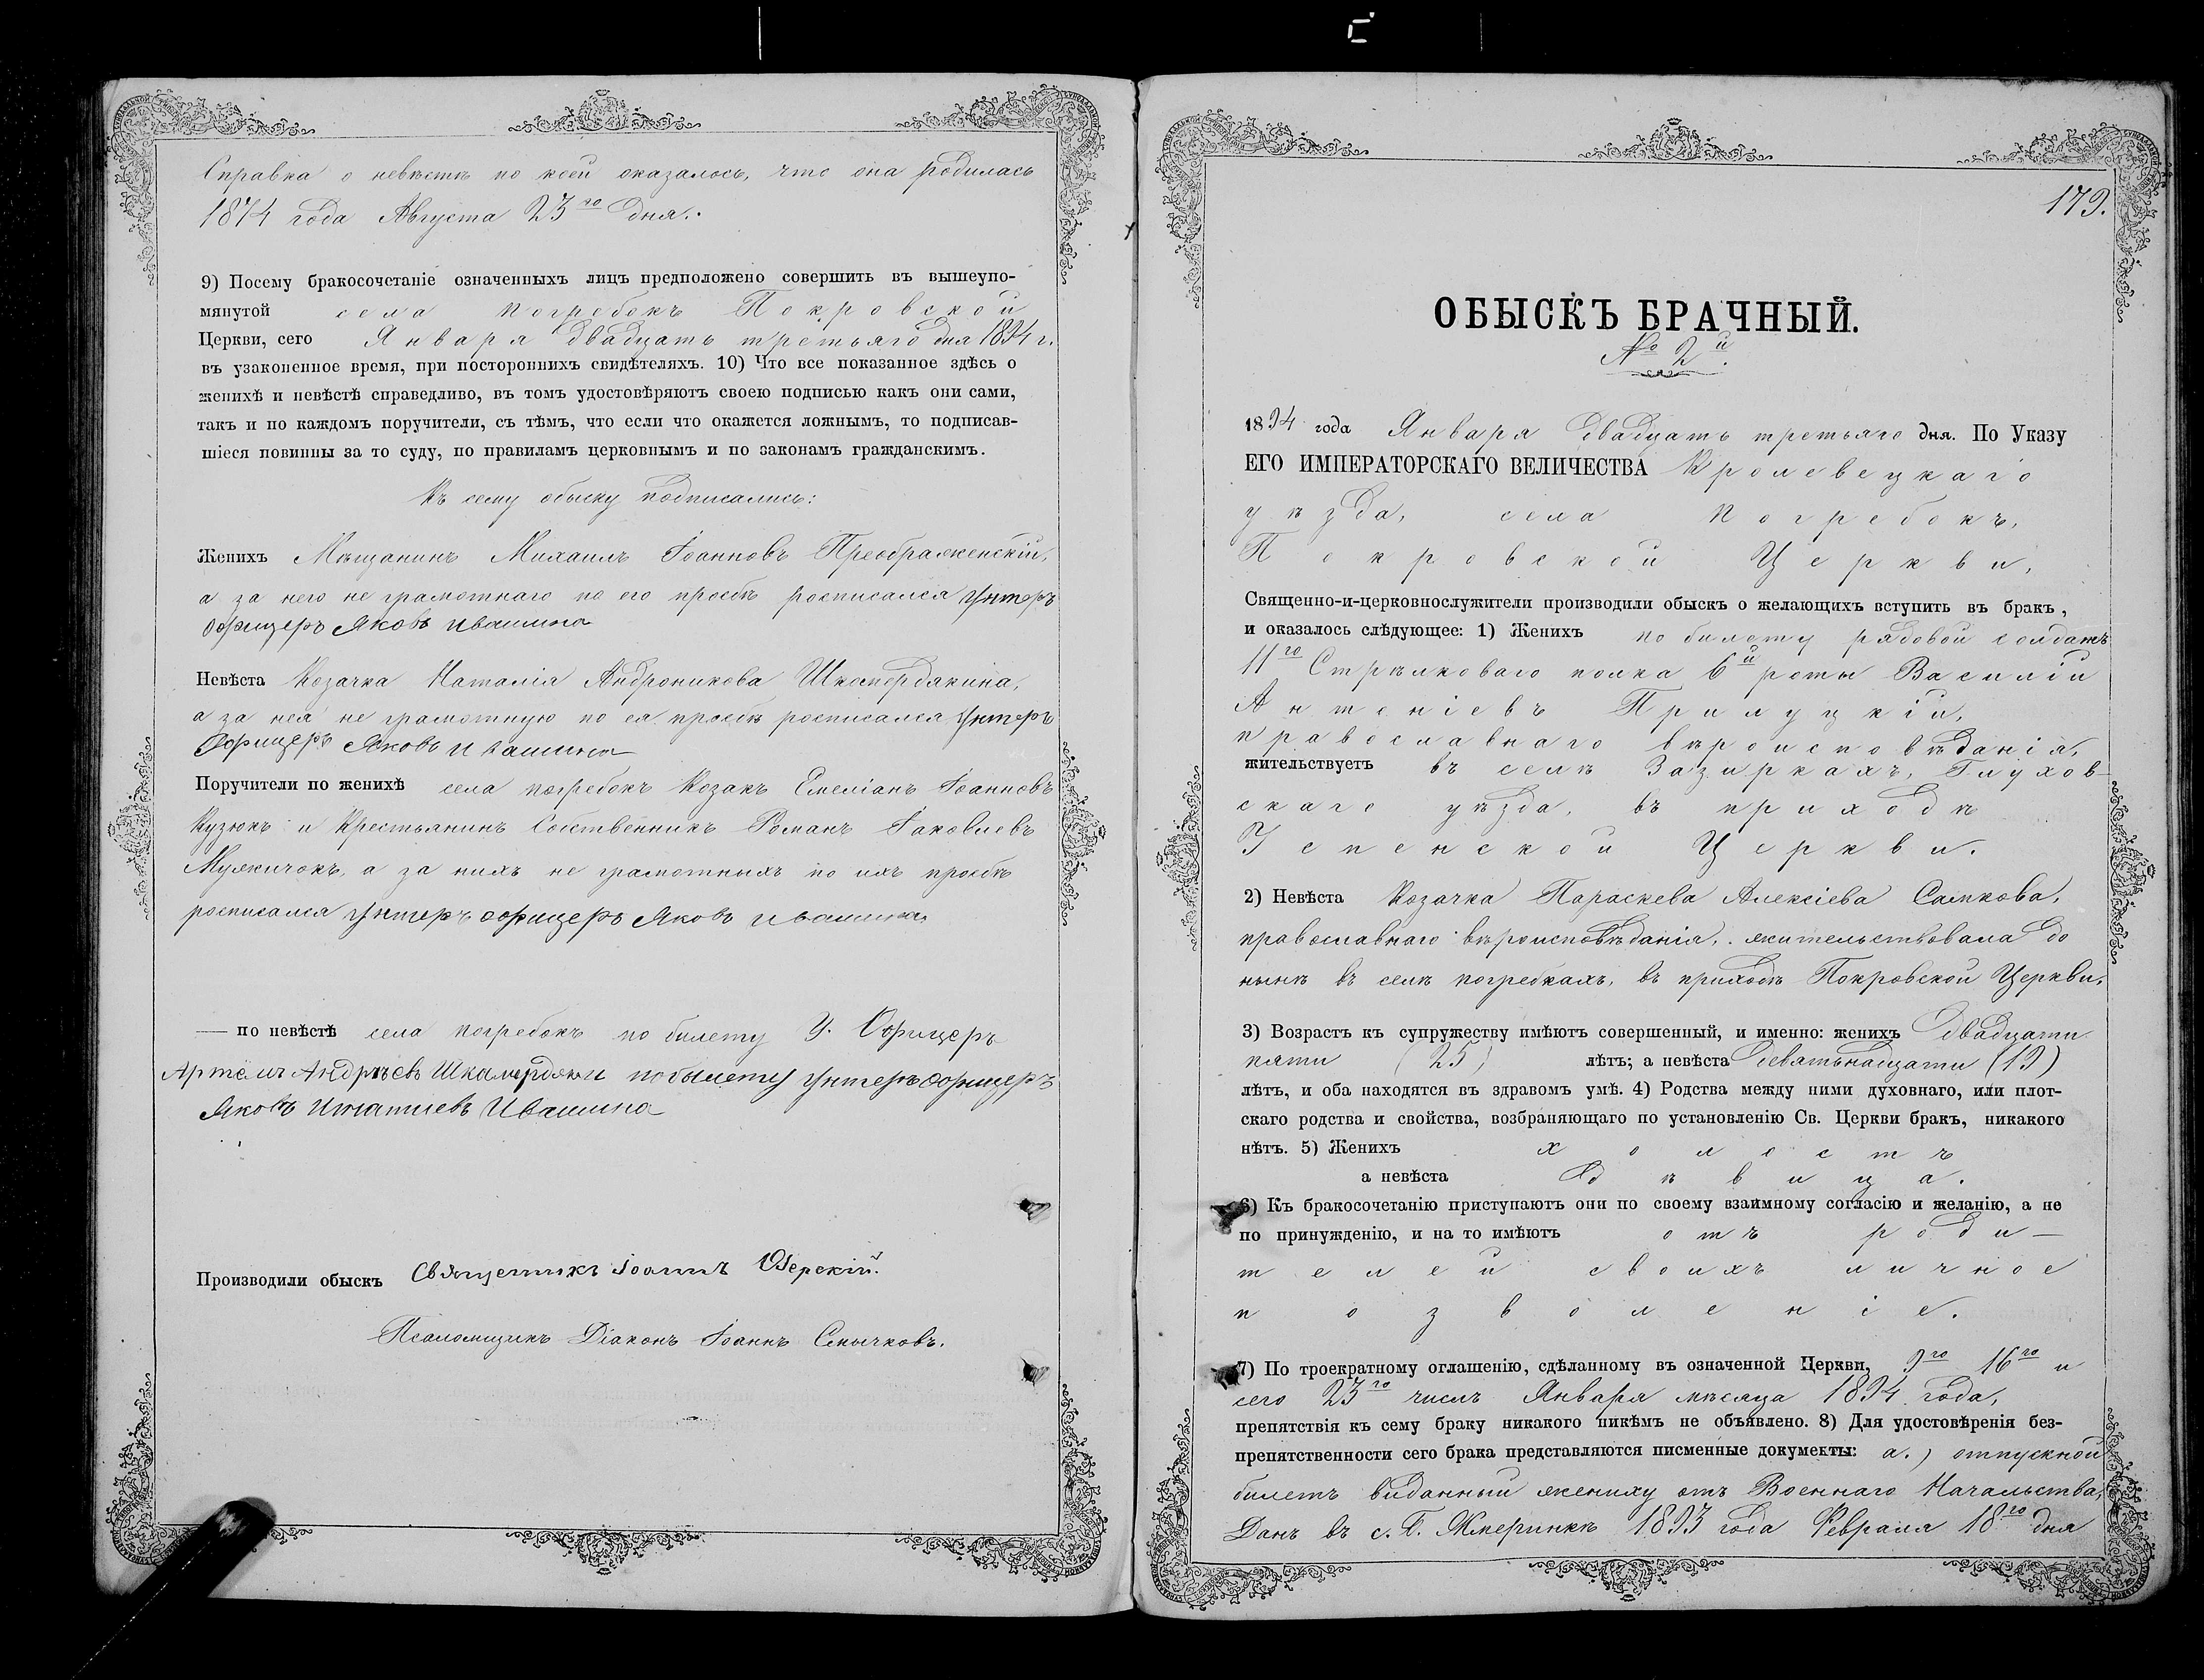 Справка о невѣстѣ по коей оказалось, что она родилась
1874 года Августа 23го дня.
9) Посему бракосочетаніе означенныхъ лицъ предположено совершить въ вышеупо-
мянутой села Погребокъ Покровской
Церкви, сего Января двадцать третьяго дня 1894 г.
въ узаконенное время, при постороннихъ свидѣтеляхъ. 10) Что все показанное здѣсь о
женихѣ и невѣстѣ справедливо, въ томъ удостовѣряютъ своею подписью какъ они сами,
такъ и по каждомъ поручители, съ тѣмъ, что если что окажется ложнымъ, то подписав-
шіеся повинны за то суду, по правиламъ церковнымъ и по законамъ гражданскимъ.
Къ сему обыску подписались:
Женихъ Мѣщанинъ Михаилъ Іоанновъ Преображенскій,
а за него не грамотнаго по его просьбѣ росписался Унтеръ
Офицеръ Яковъ Ивашина
Невѣста Козачка Наталія Андроникова
а за нея не грамотную по ея просьбѣ росписался Унтеръ
Офицеръ Яковъ Ивашина
Поручители по женихѣ села Погребокъ Козакъ Емеліанъ Іоанновъ
Кузюкъ и Крестьянинъ Собственникъ Романъ Іаковлевъ
Мужичокъ, а за нихъ не грамотныхъ по ихъ просьбѣ
росписался Унтеръ Офицеръ Яковъ Ивашина
— по невѣстѣ села Погребокъ по билету У. Офицеръ
Артемъ Андрѣевъ по билету Унтеръ Офицеръ
Яковъ Игнатиевъ Ивашина
Производили обыскъ Священникъ Іоаннъ
Псаломщикъ Діаконъ Іоаннъ
179.
ОБЫСКЪ БРАЧНЫЙ.
№ 2й.
1894 года Января двадцать третьяго дня. По Указу
ЕГО ИМПЕРАТОРСКАГО ВЕЛИЧЕСТВА Кролевецкаго
уѣзда, села Погребокъ,
Покровской Церкви,
Священно-и-церковнослужители производили обыскъ о желающихъ вступить въ бракъ,
и оказалось слѣдующее: 1) Женихъ по билету рядовой солдатъ
11го Стрѣлковаго полка 6й роты Василій
Антоніевъ Прилуцкій,
православнаго вѣроисповѣданія,
жительствуетъ въ селѣ Зазиркахъ, Глухов-
скаго уѣзда, въ приходѣ
Успенской Церкви.
2) Невѣста Козачка Параскева Алексіева Самкова,
православнаго вѣроисповѣданія, жительствовала до
нынѣ въ селѣ Погребкахъ, въ приходѣ Покровской Церкви.
3) Возрастъ къ супружеству имѣютъ совершенный, и именно: женихъ двадцати
пяти (25) лѣтъ; а невѣста девятьнацати (19)
лѣтъ, и оба находятся въ здравомъ умѣ. 4) Родства между ними духовнаго, или плот-
скаго родства и свойства, возбраняющаго по установленію Св. Церкви бракъ, никакого
нѣтъ. 5) Женихъ холостъ
а невѣста дѣвица.
6) Къ бракосочетанію приступаютъ они по своему взаимному согласію и желанію, а не
по принужденію, и на то имѣютъ отъ роди-
телей своихъ личное
позволеніе.
7) По троекратному оглашенію, сдѣланному въ означенной Церкви, 9го 16го и
сего 23го числъ Января мѣсяца 1894 года,
препятствія къ сему браку никакого никѣмъ не объявлено. 8) Для удостовѣренія без-
препятственности сего брака представляются писменные документы: а.) отпускной
билетъ виданный жениху отъ Военнаго Начальства,
Данъ въ с. Жмеринкѣ 1893 года Февраля 18го дня